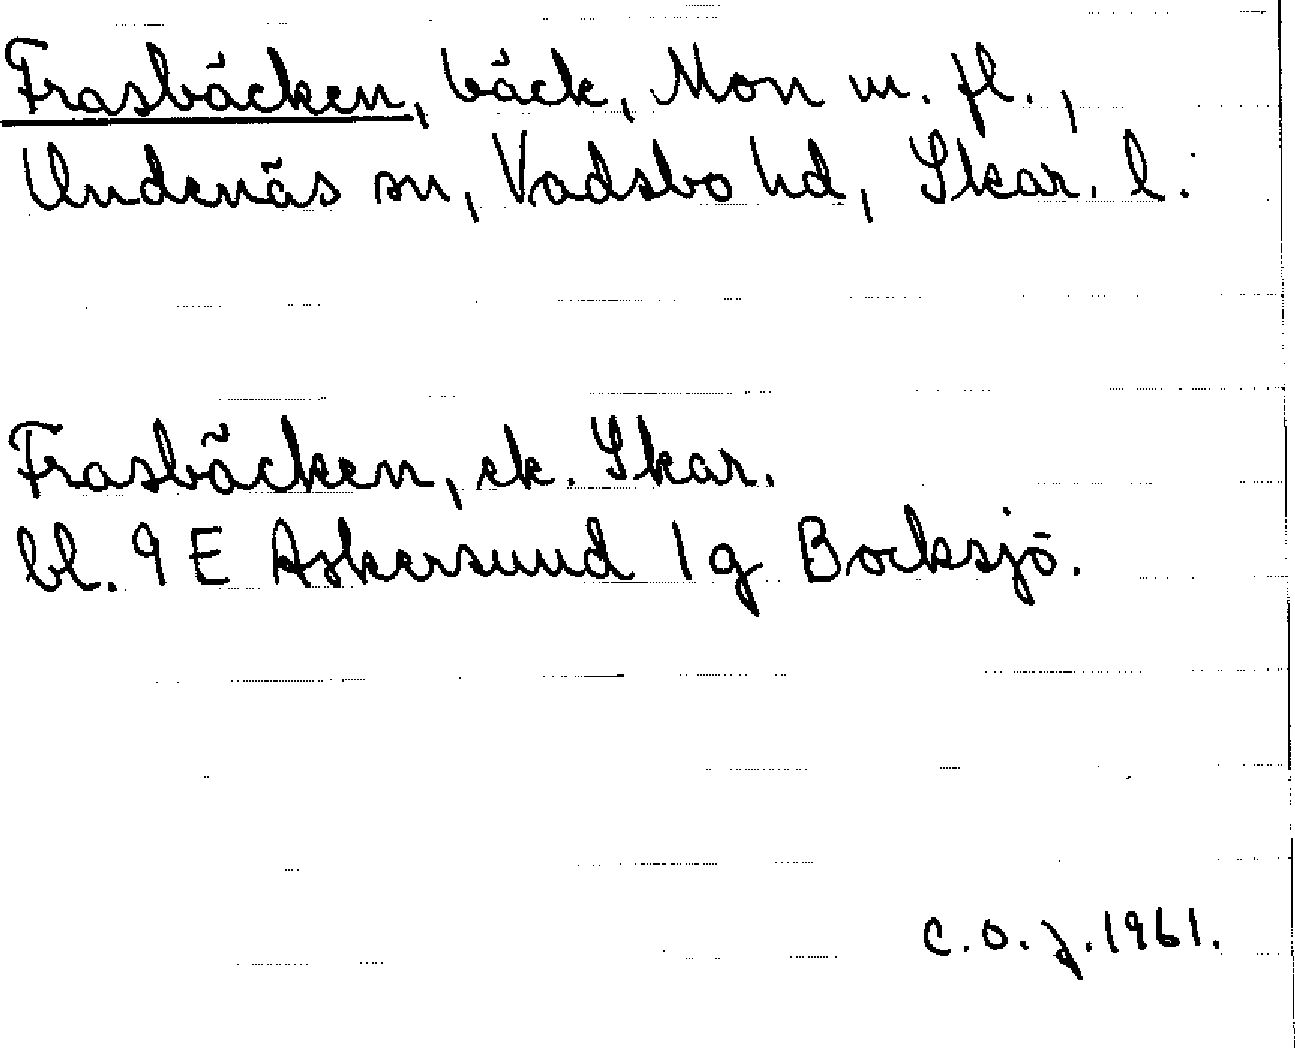 Frasbäcken, bäck, Mon m. fl.,
Undenäs sn, Vadsbo hd, Skar. l.
Frasbäcken, ek. Skar.
bl. 9 E Askersund 1 g Bocksjö.
C. O. J. 1961.